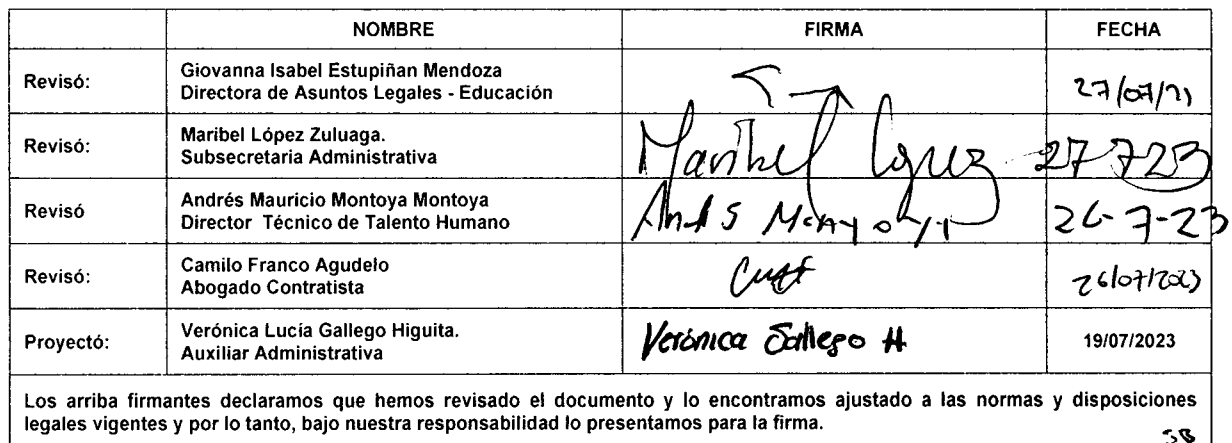 NOMBRE FIRMA FECHA
Revisó: Giovanna Isabel Estupiñan Mendoza
Directora de Asuntos Legales - Educación
27/07/23
Revisó: Maribel López Zuluaga.
Subsecretaria Administrativa
Maribel López 27-7-23
Revisó Andrés Mauricio Montoya Montoya
Director Técnico de Talento Humano
26-7-23
Revisó: Camilo Franco Agudelo
Abogado Contratista
26/07/2023
Proyectó: Verónica Lucía Gallego Higuita.
Auxiliar Administrativa
Verónica Gallego H 19/07/2023
Los arriba firmantes declaramos que hemos revisado el documento y lo encontramos ajustado a las normas y disposiciones
legales vigentes y por lo tanto, bajo nuestra responsabilidad lo presentamos para la firma.
SB